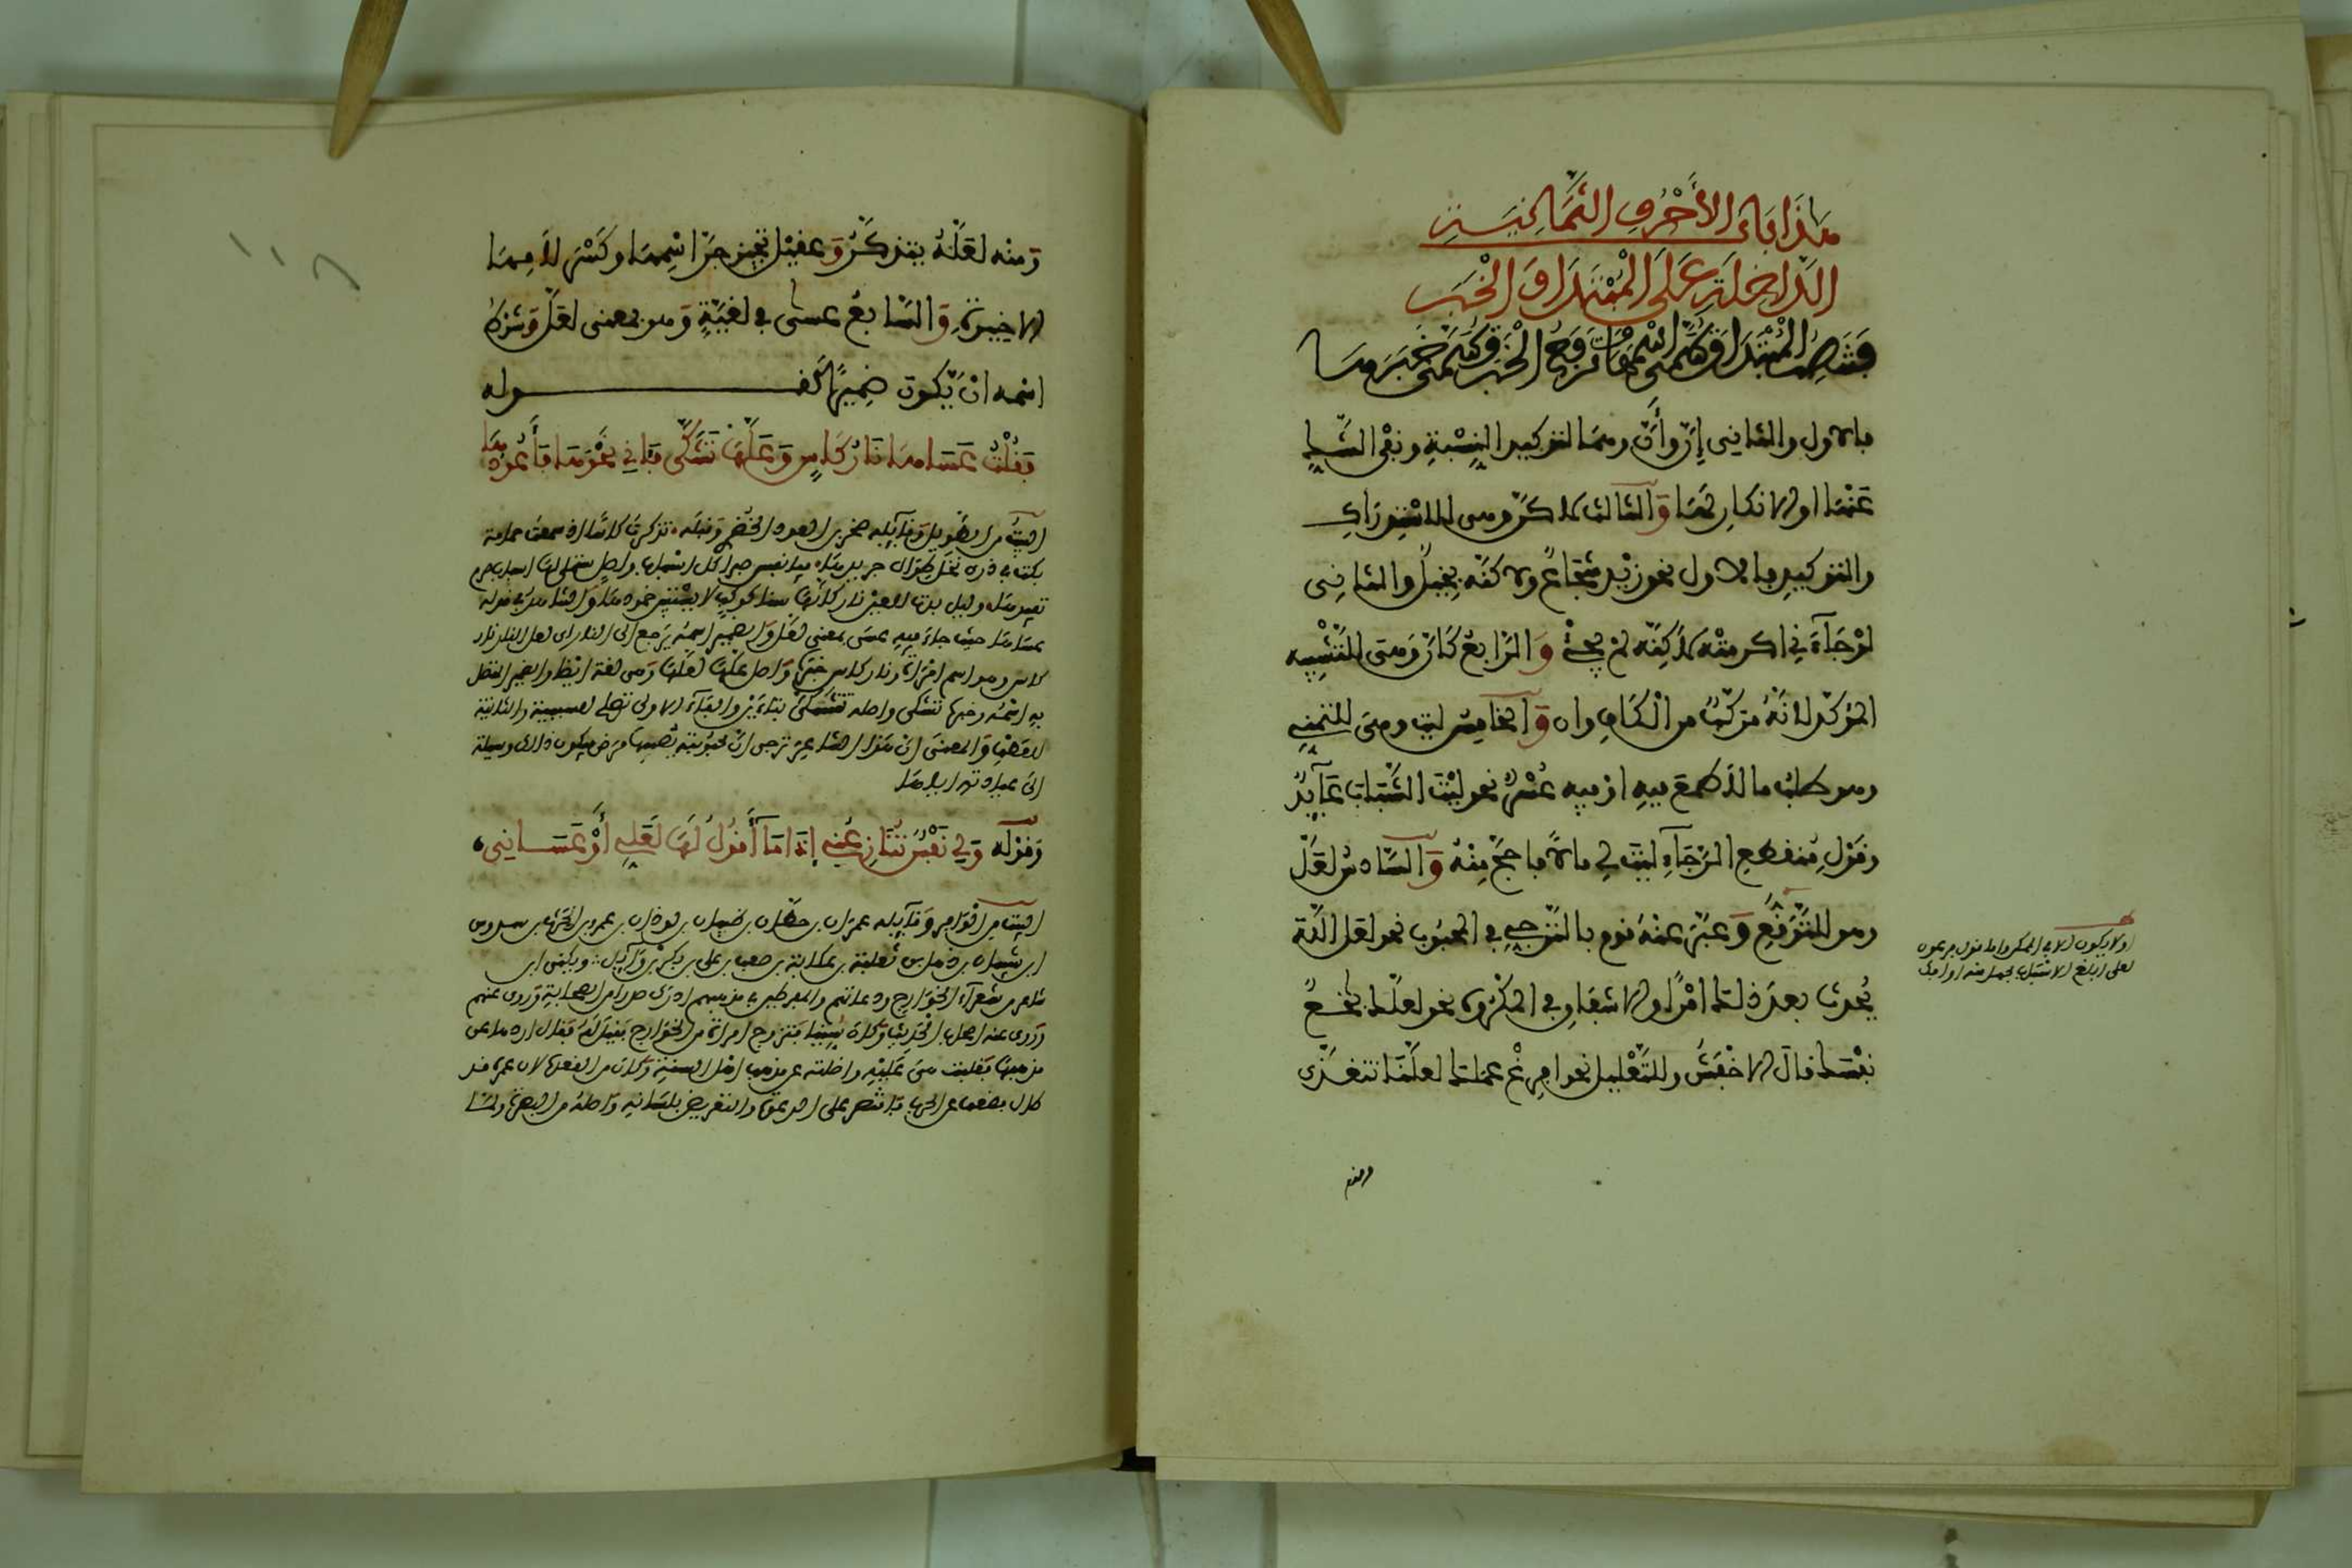 هَذَا بَابُ الأَحْرُفِ الثَّمَانِيَةِ
الدَّاخِلَةِ عَلَى الْمُبْتَدَإِ وَالْخَبَرِ
فَتَنْصِبُ الْمُبْتَدَأَ وَيُسَمَّى اسْمَهَا وَتَرْفَعُ الْخَبَرَ وَيُسَمَّى خَبَرَهَا
فالاول والثاني إِنَّ وأَنَّ وهما لتوكيد النِّسْبَةِ ونفي الشَّكِّ
عَنْهَا او الانكارِ لهَا وَالثالث لاكنَّ وهي للاسْتِدْرَاكِ
والتوكيدِ فالاول نحو زيْد شجَاعٌ ولاكنَّه بخيلٌ والثانِي
لوْ جَآءَنِي اكرمتُه لاكِنَّه لمْ يجِئْ وَالرَّابعُ كَأَنَّ وَهيَ للتَّشْبِيه
المؤكّد لأنَّهُ مركّبٌ من الْكَافِ وان وَالخامِسُ ليت وهيَ للتمَنِّي
وهو طلبُ ما لا طَمَعَ فِيهِ او ما فِيه عُسْرٌ نحو ليْتَ الشَّبَابَ عَآئِدٌ
وقَوْلِ مُنقطِعِ الرَّجَآءِ ليْتَ لِي مالاً فاحجَّ مِنْهُ وَالسَّادسُ لعَلَّ
وهو للتَّوَقُّعِ وَعبّرَ عنْهُ قوم بالتَّرَجِّي في المحبُوب نحو لعل اللَّهَ
يُحدِثُ بعدَ ذلكَ امْرًا والاشفاق في المكْرُوه نحو لعلّكَ باخِعٌ
نفْسَكَ قالَ الاخْفَشُ وللتَّعْلِيل نحو افرِغْ عملكَ لعلَّنَا نتغدّى
او لا يكون الا في الممكن واما قول فرعون
لعلي ابلغ الاسباب
ومنْه لعَلَّهُ يتذكَّرُ وَعقيْل تجيز جَرَّ اسْمِهَا وكَسْر لامِهَا
الاخِيرةِ وَالسَّابعُ عسَى في لغَيَّةٍ وَهي بمعنى لعَلَّ وَشرْطُ
اسْمه انْ يَّكونَ ضمِيرًا كقوله
فَقُلْتُ عَسَاهَا نَارُ كَأْسٍ وَعَلَّهَا تَشَكَّى فَآتِي نَحْوَهَا فَأَعُودُهَا
البيْتُ من الطويل وَقآئله صخر بن العود الخُضري وقبله تذكرتُ كاسًا اذ سمعتُ حمامة
بكت في ذرى نخل طوال جريدها
عساها حيث جاءَ فِيهِ عسَى بمعنى لعَلَّ وَالضمير اسمهُ يَرجع الى النار اي لعل النار نار
كاس وهو اسم امرأة ونار كاس خبرها وَاصل علّهَا لعَلّهَا وَهي لغة ايضًا والضمير المتصل
بهِ اسْمُه وخبرها تشكى واصله تتشَكَّى بتاءَيْن والفآءُ الاولى تصلح للسببية والثانية
للعطفِ وَالمعنى انْ هَذا الشاعر ترجى انّ محبُوبته يُصيبها مرض فيكون ذالك وسيلة
الى عيادته اياهَا
وَقوْلِه وَلِي نَفْسٌ تُنَازِعُنِي إِذَا مَا أَقُولُ لَهَا لَعَلِّي أَوْ عَسَانِي
البيتُ من الْوَافِر وَقآئِله عمران بن حطّان بن ظبيان بن لوذان بن عمرو بن الحَرث بن سدوس
ابن شيبان بن ذهل بن ثعلبة بن عكابة بن صعب بن علي بن بكر بن وَآئل ويكنى ابى
شاعر من شعرآءِ الخوَارج ودعاتهم والمقدّمين في مذهبهم ادركَ صدرا من الصحابة وَروى عنهم
وَروى عنه اصحابُ الْحديث وَكانَ سُنّيا فتزوج امرأة من الخوَارج فقيلَ لهُ فقال اردها عن
مذهبها فغلبت هيَ عَليْهِ واضلته عن مذهب اهْل السنةِ وَكان من القعدة لان عمره قد
طال بضعف عن الحرب فاقتصر على الدعوة والتحريض بلسَانهِ وَاصلهُ من البصرة ولمّا